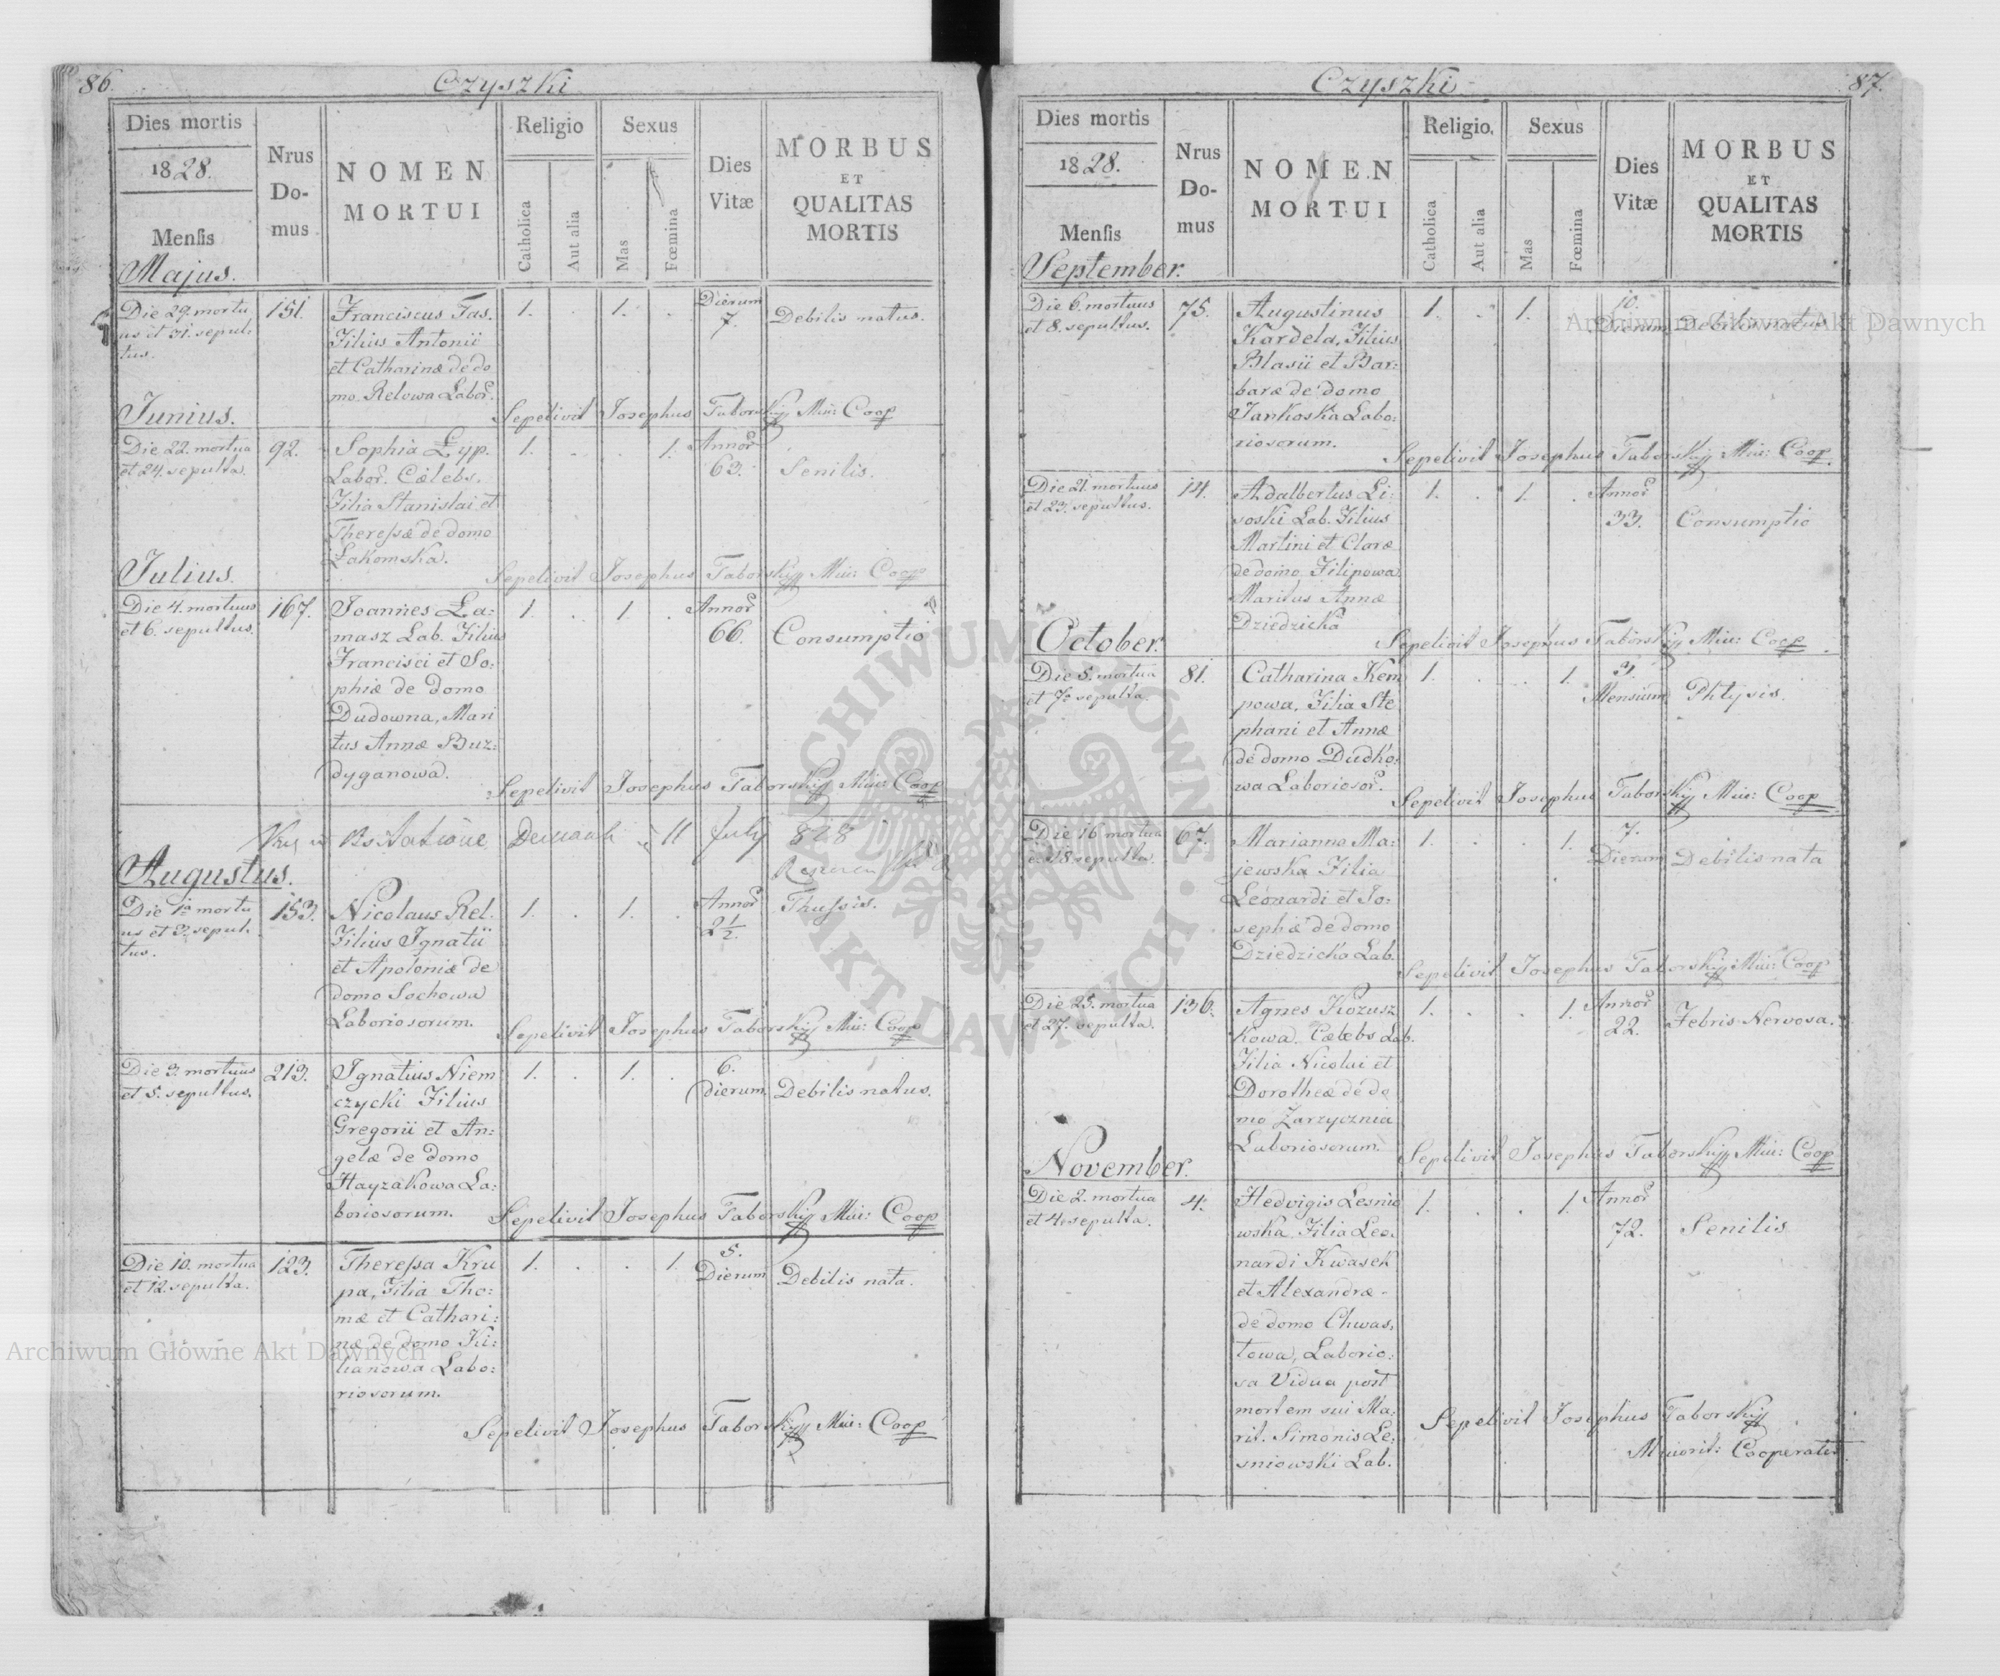 86.
Czyszki
Dies mortis
1828.
Mensis
Nrus
Do-
mus
NOMEN
MORTUI
Religio
Catholica
Aut alia
Sexus
Mas
Fœmina
Dies
Vitæ
MORBUS
ET
QUALITAS
MORTIS
Majus.
Die 29. mortu
us et 31. sepul:
tus.
151.
Franciscus Fas.
Filius Antonii
et Catharinæ de do
mo Relowa Labor.
1. . 1. .
Dierum
7.
Debilis natus.
Sepelivit Josephus Taborskij Min: Coop
Junius.
Die 22. mortua
et 24. sepulta.
92.
Sophia Łyp.
Labor. Cælebs.
Filia Stanislai et
Theressæ de domo
Łakomska.
1. . . 1.
Annor
63.
Senilis.
Sepelivit Josephus Taborskij Min: Coop
Julius.
Die 4. mortuus
et 6. sepultus.
167.
Joannes Ła:
masz Lab. Filius
Francisci et So:
phiæ de domo
Dudowna, Mari
tus Annæ Buz:
dyganowa.
1. . 1. .
Annor
66.
Consumptio
Sepelivit Josephus Taborskij Min: Coop
11 July 828
Augustus.
Die 1a mortu
us et 3. sepul:
tus.
153.
Nicolaus Rel.
Filius Ignatii
et Apoloniæ de
domo Sochowa
Laboriosorum.
1. . 1. .
Annor
2 1/2.
Thussis.
Sepelivit Josephus Taborskij Min: Coop
Die 3. mortuus
et 5. sepultus.
213.
Ignatius Niem
czycki Filius
Gregorii et An:
gelæ de domo
Hayzakowa La:
boriosorum.
1. . 1. .
6.
dierum
Debilis natus.
Sepelivit Josephus Taborskij Min: Coop
Die 10. mortua
et 12. sepulta.
123.
Theressa Kru
pa, Filia Tho:
mæ et Cathari:
næ de domo Ki:
lianowa Labo:
riosorum.
1. . . 1.
5.
Dierum
Debilis nata.
Sepelivit Josephus Taborskij Min: Coop
87.
Czyszki
Dies mortis
1828.
Mensis
Nrus
Do-
mus
NOMEN
MORTUI
Religio.
Catholica
Aut alia
Sexus
Mas
Fœmina
Dies
Vitæ
MORBUS
ET
QUALITAS
MORTIS
September.
Die 6. mortuus
et 8. sepultus.
75.
Augustinus
Kardela, Filius
Blasii et Bar:
baræ de domo
Jankoska Labo:
riosorum.
1. . 1. .
10.
Dierum
Debilis natus
Sepelivit Josephus Taborskij Min: Coop.
Die 21. mortuus
et 23. sepultus.
14.
Adalbertus Li:
soski Lab. Filius
Martini et Claræ
de domo Filipowa
Maritus Annæ
Dziedzicka
1. . 1. .
Annor
33.
Consumptio
Sepelivit Josephus Taborskij Min: Coop
October.
Die 5. mortua
et 7. sepulta
81.
Catharina Kem
powa, Filia Ste
phani et Annæ
de domo Dudko:
wa Laborisor.
1. . . 1.
3.
Mensium
Phtysis.
Sepelivit Josephus Taborskij Min: Coop
Die 16 mortua
et 18 sepulta.
67.
Marianna Ma:
jewska Filia
Leonardi et Jo:
sephæ de domo
Dziedzicka Lab.
1. . . 1.
7.
Dierum
Debilis nata
Sepelivit Josephus Taborskij Min: Coop
Die 25. mortua
et 27. sepulta.
136.
Agnes Kożusz
kowa. Cælebs Lab.
Filia Nicolai et
Dorotheæ de do
mo Zarzycznia
Laboriosorum.
1. . . 1.
Annor
22.
Febris Nervosa.
Sepelivit Josephus Taborskij Min: Coop
November.
Die 2. mortua
et 4. sepulta.
4.
Hedvigis Lesnio
wska, Filia Leo.
nardi Kwasek
et Alexandræ
de domo Chwas,
towa, Laborio:
sa Vidua post
mortem sui Ma:
rit. Simonis Le:
sniowski Lab.
1. . . 1.
Annor
72.
Senilis
Sepelivit Josephus Taborskij
Minorit: Cooperator
Archiwum Główne Akt Dawnych
Archiwum Główne Akt Dawnych
ARCHIWUM GŁÓWNE AKT DAWNYCH